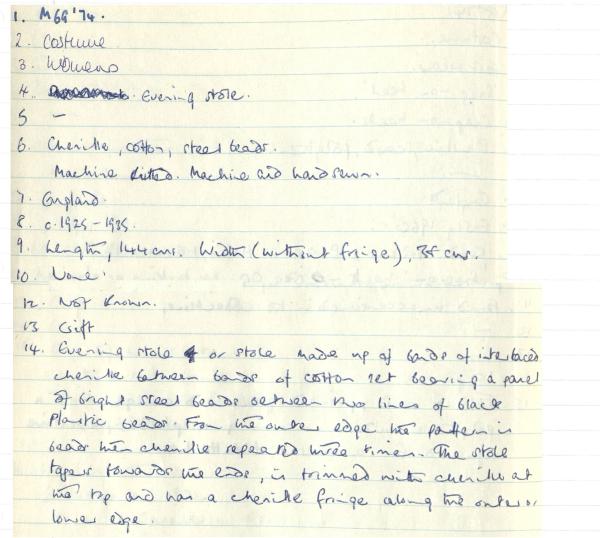 1. M69'74.
2. Costume
3. Womens
4. Evening stole.
5 –
6. Chenille, cotton, steel beads.
Machine knitted. Machine and handsewn.
7. England.
8. c.1925-1935.
9. Length, 144 cms. Width (without fringe), 35 cms.
10. None.
12. Not Known.
13 Gift
14. Evening stole or stole made up of bands of interlaced
chenille between bands of cotton net bearing a panel
of bright steel beads between two lines of black
plastic beads. From the outer edge the pattern is
beads then chenille repeated three times. The stole
tapers towards the ends, is trimmed with chenille at
the top and has a chenille fringe along the outer or
lower edge.